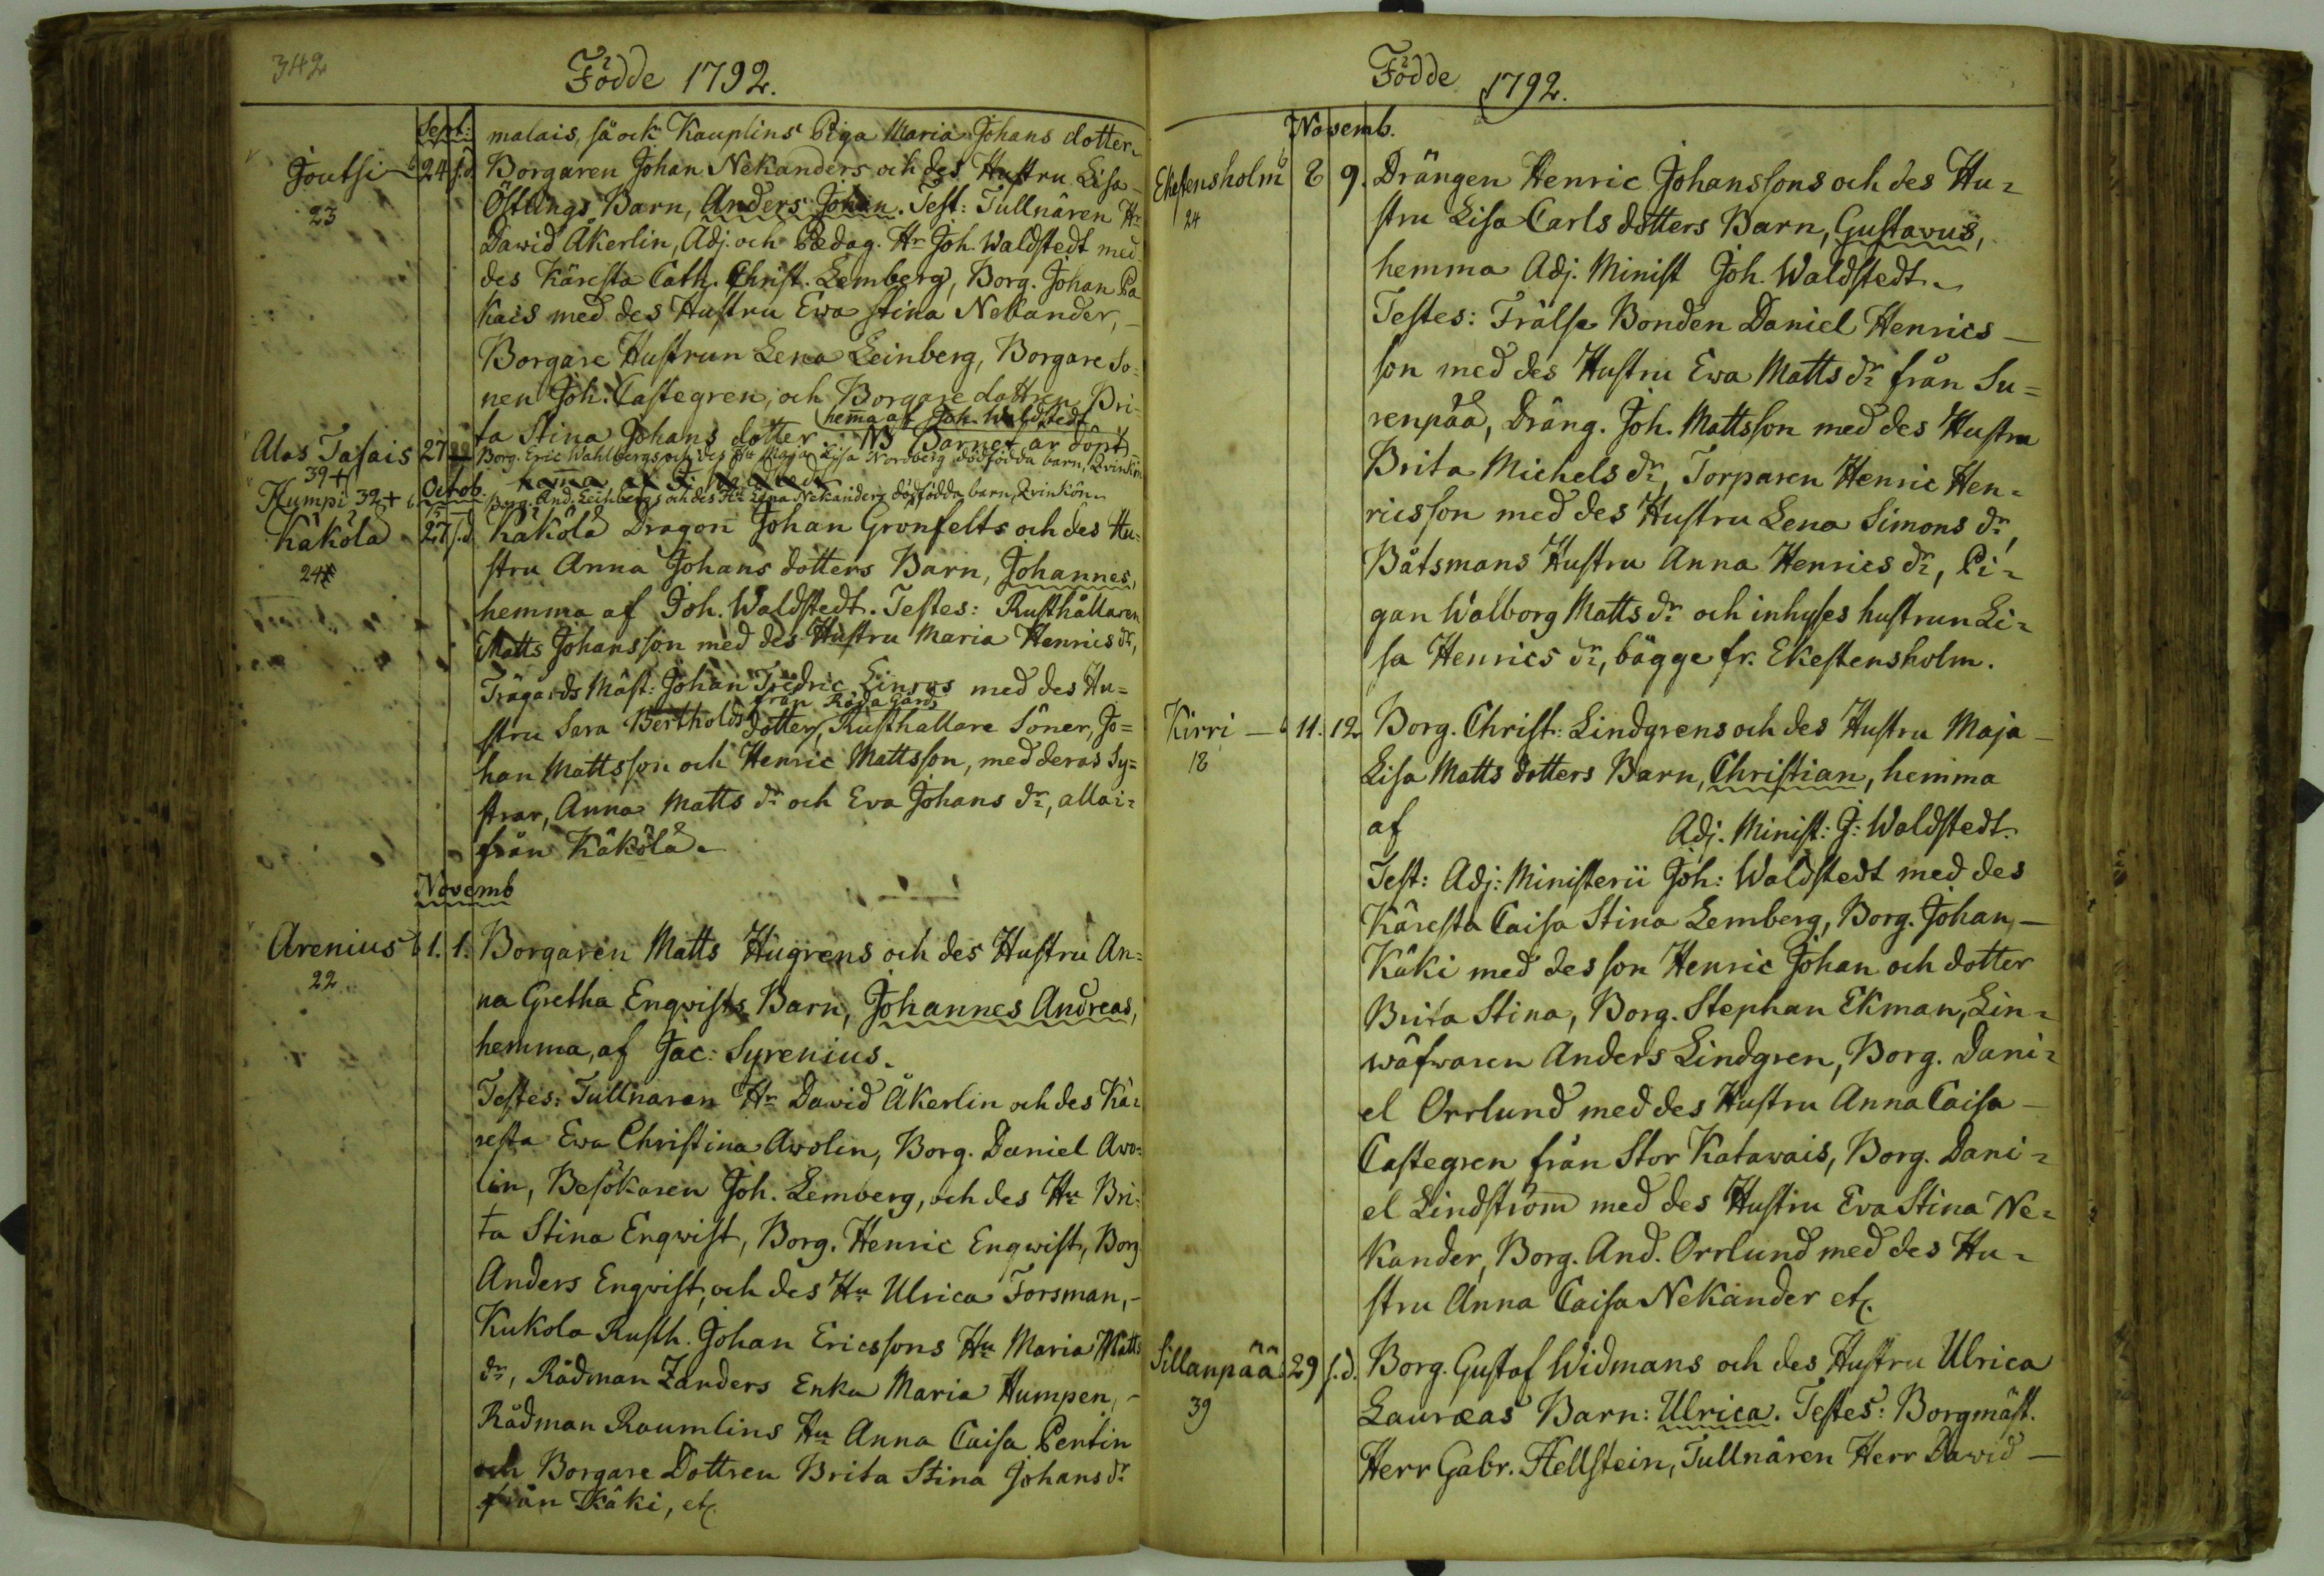 342
Födde 1792.
Sept: malais, så ock Kauplins Piga Maria Johans dotter
Joutsi 24 s.d. Borgaren Johan Nekanders och des Hustru Lisa
23 Östlings Barn, Anders Johan. Test: Tullnären Hr
Dawid Åkerlin, Adj. och Pædag. Hr Joh. Waldstedt med
des Käresta Cath. Christ. Lemberg, Borg. Johan Pa
kais med des Hustru Ewa Stina Nekander, –
Borgare Hustrun Lena Leinberg, Borgare So-
nen Joh: Castegren, och Borgare dottren Bri-
hemma af Joh. Waldstedt
ta Stina Johans dotter. NB Barnet är döpt
Alas Tasais 27 Borg. Eric Wahlbergs och des Hu Maja Lisa Nordberg dödfödda barn, Qvinkön
39 + hemma af J: Waldstedt
Humpi 32 + Octob. Borg. And. Leinbergs och des Hu Lena Nekanders dödfödda barn, Qvinkön
Käkölä 27 s.d. Käkölä Dragon Johan Gronfelts och des Hu-
24 stru Anna Johans dotters Barn, Johannes,
hemma af Joh. Waldstedt. Testes: Rusthållaren
Matts Johansson med des Hustru Maria Henrics dr,
Trägårds Mäst: Johan Fredric Linros med des Hu=
från Röda Gård
stru Sara Bertholds dotter, Rusthållare Söner, Jo=
han Mattsson och Henric Mattsson, med deras Sy=
strar, Anna Matts dr och Eva Johans dr, alla i-
från Käkölä.
Novemb
Arenius 1. 1. Borgaren Matts Hugrens och des Hustru An-
22 na Gretha Enqvists Barn, Johannes Andreas,
hemma, af Jac: Syrenius.
Testes: Tullnaren Hr Dawid Åkerlin och des Kä-
resta Ewa Christina Awolin, Borg. Daniel Awo-
lin, Besökaren Joh. Lemberg, och des Hu Bri-
ta Stina Enqwist, Borg. Henric Enqwist, Borg
Anders Enqvist, och des Hu Ulrica Forsman, –
Kukola Rusth. Johan Ericssons Hu Maria Matts
dr, Rådman Zanders Enka Maria Humpen, –
Rådman Raumlins Hu Anna Caisa Pentin
och Borgare Dottren Brita Stina Johans dr
från Käki, etc
Födde 1792.
Novemb.
Ekestensholm 8 9. Drängen Henric Johanssons och des Hu-
24 stru Lisa Carls dotters Barn, Gustavus,
hemma Adj. Minist Joh. Waldstedt.
Testes: Frälse Bonden Daniel Henrics –
son med des Hustru Ewa Matts dr från Su=
renpää, Dräng. Joh. Mattsson med des Hustru
Brita Michels dr, Torparen Henric Hen-
ricsson med des Hustru Lena Simons dr,
Båtsmans Hustru Anna Henrics dr, Pi-
gan Walborg Matts dr och inhyses hustrun Li-
sa Henrics dr, bägge fr. Ekestensholm.
Kirri – 11. 12 Borg. Christ: Lindgrens och des Hustru Maja –
18 Lisa Matts dotters Barn, Christian, hemma
af Adj. Minist: J: Waldstedt.
Test: Adj: Ministerii Joh: Waldstedt med des
Käresta Caisa Stina Lemberg, Borg. Johan –
Käki med des son Henric Johan och dotter
Brita Stina, Borg. Stephan Ekman, Lin-
wäfwaren Anders Lindgren, Borg. Dani-
el Orrlund med des Hustru Anna Caisa –
Castegren från Stor Katawais, Borg. Dani-
el Lindström med des Hustru Eva Stina Ne-
kander, Borg. And. Orrlund med des Hu-
stru Anna Caisa Nekander etc.
Sillanpää 29 s.d. Borg. Gustaf Widmans och des Hustru Ulrica
39 Lauræas Barn: Ulrica. Testes: Borgmäst.
Herr Gabr. Hellstein, Tullnären Herr Dawid –